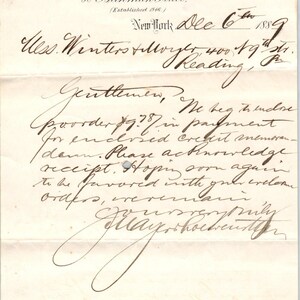 (Established 1846.)
New York Dec 6th 1889
Mess. Winters & Moyer, 400 N 9th Str.
Reading, Pa
Gentlemen,
We beg to enclose
po order $9.78/ in payment
for enclosed credit memoran-
dum. Please acknowledge
receipt. Hoping soon again
to be favored with your welcome
orders, we remain
Yours very truly